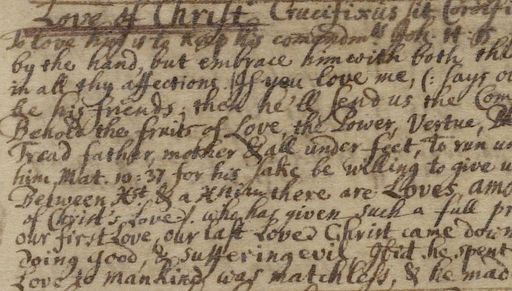 Love of Christ Crucifixus sit Cordi
To love him is to keep his comandmts Joh:
by the hand, but embrace him with both, the
in all thy affections. If you love me, (: says
be his friends, then he'll send us the Com
Behold the fruits of Love, the Power, Vertue,
Tread father, mother & all under feet, To run un
him, Mat. 10:37. for his sake be willing to give u
Between Xst & a Xtian there are Loves amo
of Christ's Love). who has given such a full pr
our first Love, our last Love. Christ came down
doing good, & suffering evil, he spent
Love to Mankind was matchless, & he mad